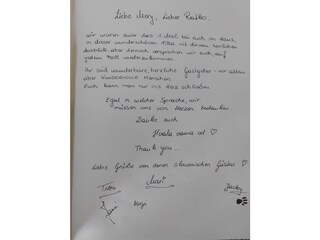 Liebe Mery, Lieber Ratko.
wir waren zwar das 1. Mal bei euch im Haus
in dieser wunderschönen Villa mit diesem herrlichen
Ausblick, aber dennoch versprechen wir euch, auf
jeden Fall wiederzukommen.
Ihr seid wunderbare, herzliche Gastgeber - vor allem
aber wundervolle Menschen.
Euch kann man nur ins Herz schließen.
Egal in welcher Sprache, wir
müssen uns von Herzen bedanken
Danke euch
Hvala vama od ♡
Thank you
Liebe Grüße von deinen slowenischen Gästen ♡